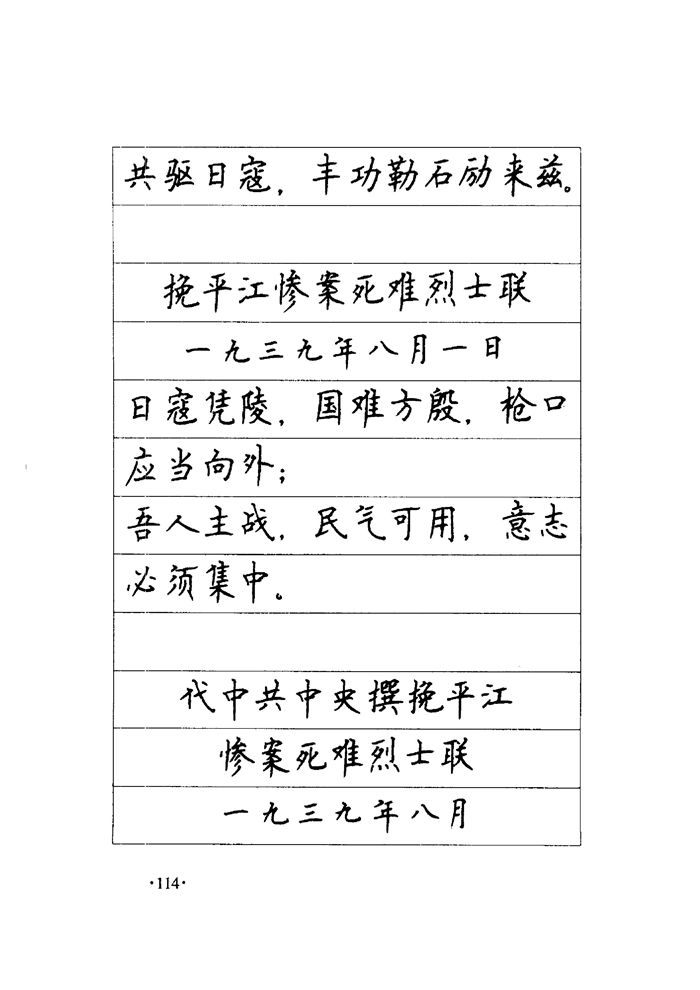 共驱日寇，丰功勒石励来兹。
挽平江惨案死难烈士联
一九三九年八月一日
日寇凭陵，国难方殷，枪口
应当向外；
吾人主战，民气可用，意志
必须集中。
代中共中央撰挽平江
惨案死难烈士联
一九三九年八月
·114·